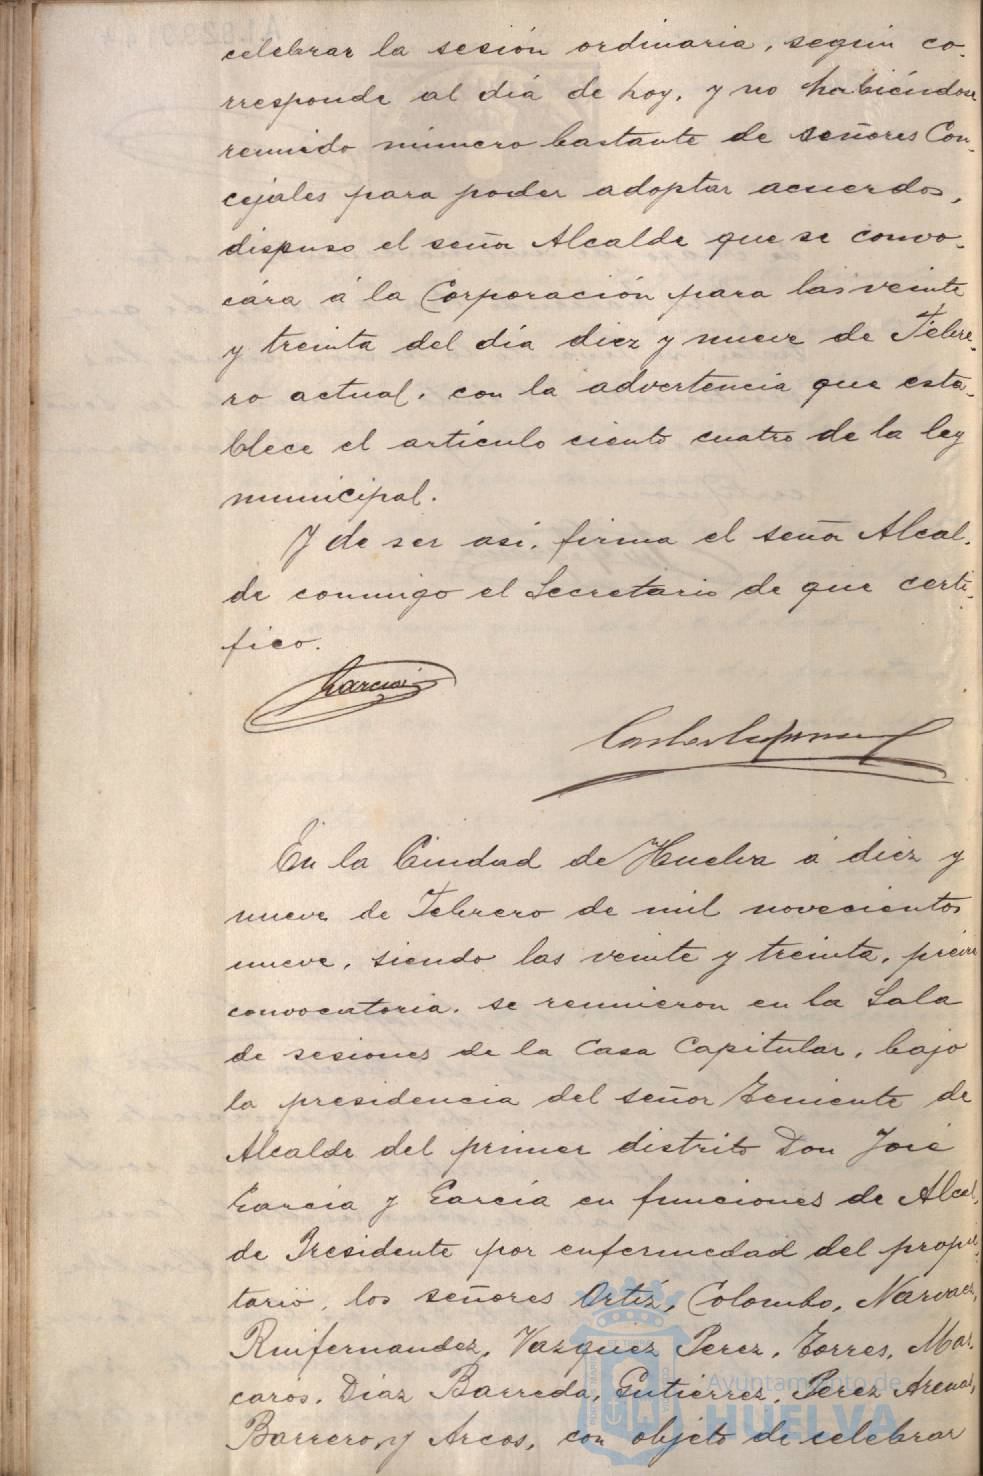 celebrar la sesión ordinaria, según co-
rresponde al día de hoy, y no habiéndose
reunido número bastante de señores Con-
cejales para poder adoptar acuerdos,
dispuso el señor Alcalde que se convo-
cára á la Corporación para las veinte
y treinta del día diez y nueve de Febre-
ro actual, con la advertencia que esta-
blece el artículo ciento cuatro de la ley
municipal.
Y de ser así, firma el señor Alcal-
de conmigo el Secretario de que certi-
fico.
García
En la Ciudad de Huelva á diez y
nueve de Febrero de mil novecientos
nueve, siendo las veinte y treinta, previa
convocatoria, se reunieron en la Sala
de sesiones de la Casa Capitular, bajo
la presidencia del señor Teniente de
Alcalde del primer distrito Don José
García y García en funciones de Alcal-
de Presidente por enfermedad del propie-
tario, los señores Ortíz, Colombo, Narvaez,
Ruifernandez, Vazquez Perez, Torres, Mar-
caros, Díaz Barreda, Gutiérrez, Perez Arenas,
Barrero, y Arcos, con objeto de celebrar
Ayuntamiento de
HUELVA